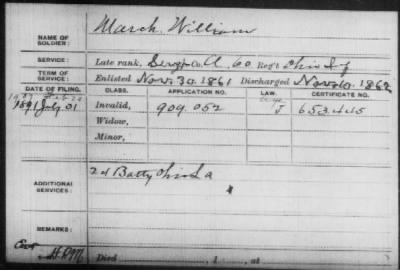 NAME OF SOLDIER: March, William
SERVICE: Late rank, Sergt Co. A, 60 Reg't Ohio Inf
TERM OF SERVICE: Enlisted Nov. 30, 1861 Discharged Nov 10, 1862
DATE OF FILING. CLASS. APPLICATION NO. LAW. CERTIFICATE NO.
1891 July 01 Invalid, 909.052 J 653.445
Widow,
Minor,
ADDITIONAL SERVICES: 2d Batty Ohio L a
REMARKS:
Died , 1 , at